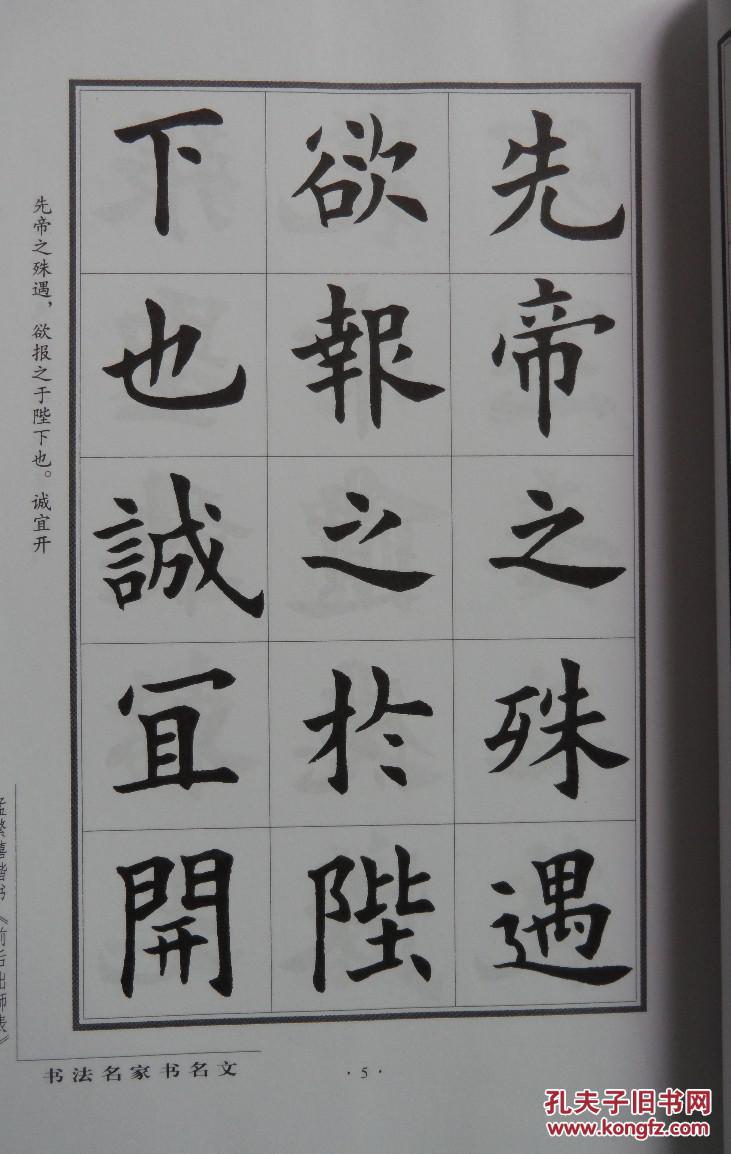 先帝之殊遇
欲報之於陛
下也誠宜開
先帝之殊遇，欲报之于陛下也。诚宜开
孟繁禧楷书《前后出师表》
书法名家书名文
·5·
孔夫子旧书网
www.kongfz.com